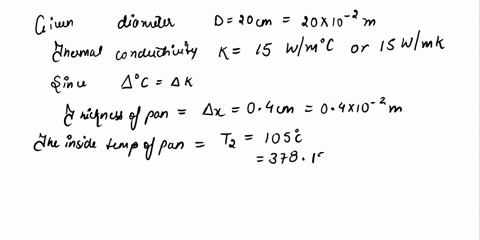 Given diameter D = 20 cm = 20×10⁻² m
Thermal conductivity K = 15 W/m°C or 15 W/mk
Since Δ°C = ΔK
Thickness of pan = Δx = 0.4 cm = 0.4×10⁻² m
The inside temp of pan = T₂ = 105°C
= 378.15